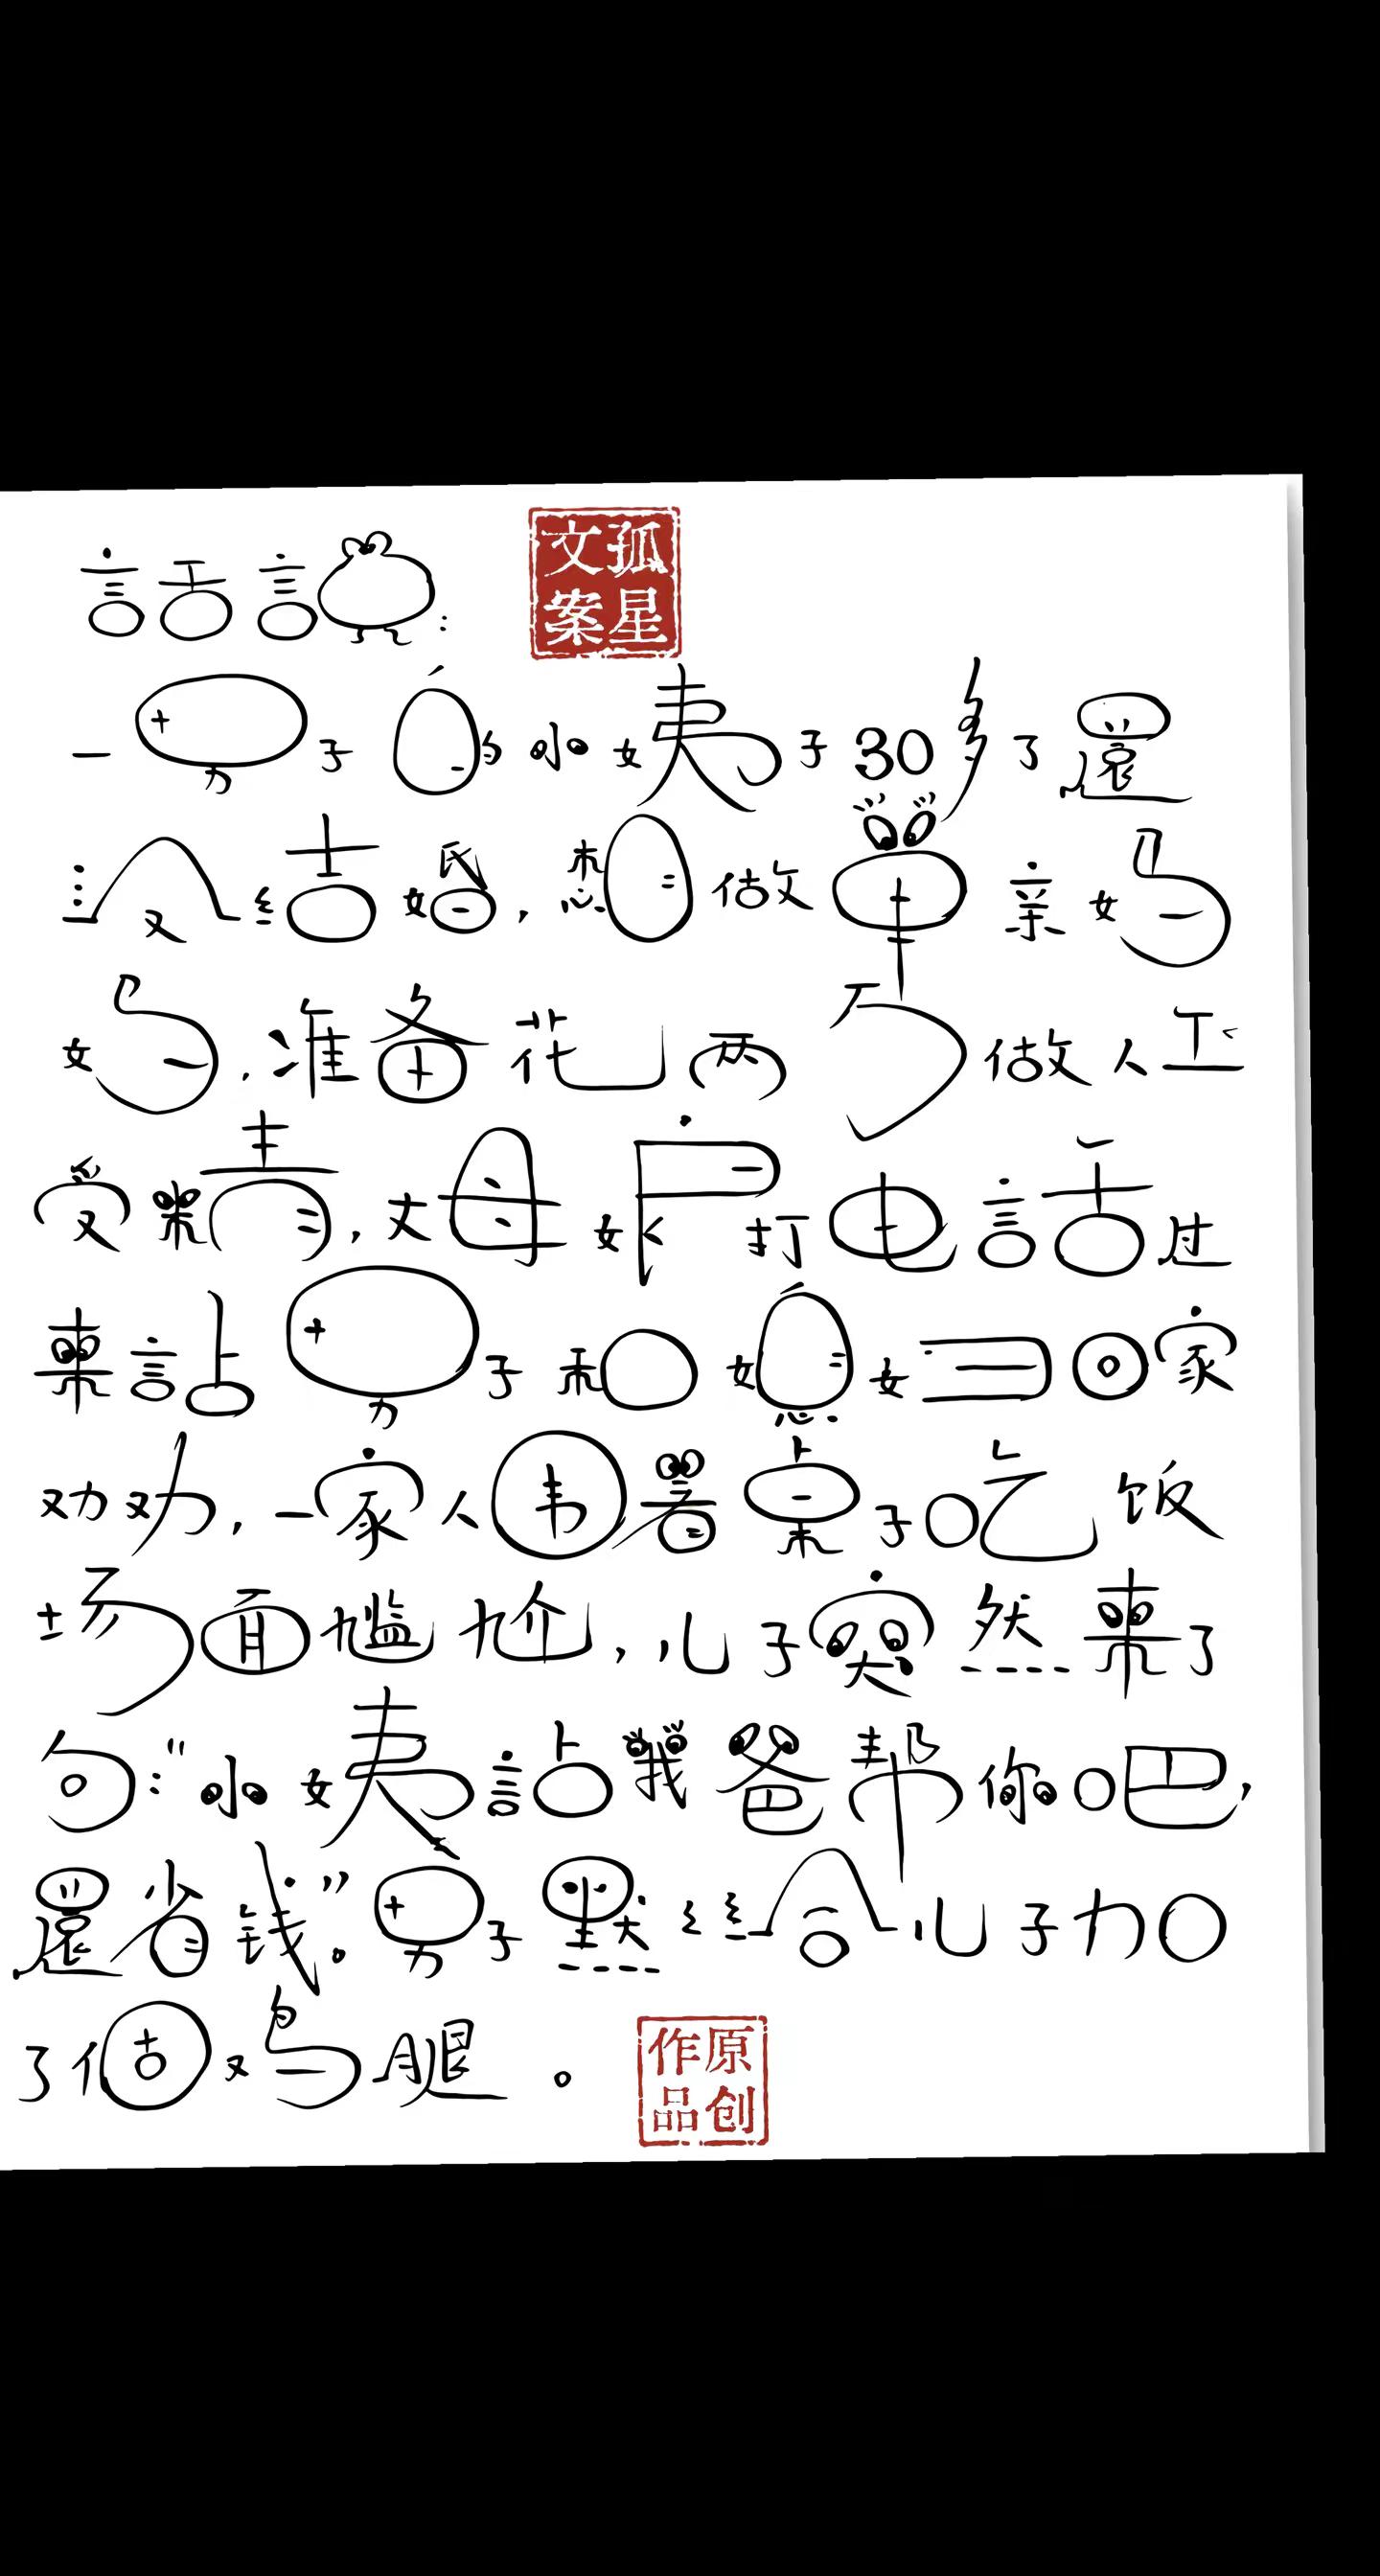 話說:
文孤
案星
一男子的小姨子30多了還
没结婚,想做单亲妈
妈,准备花两万做人工
受精,丈母娘打电話过
来話男子和媳妇回家
劝劝,一家人围著桌子吃饭
场面尴尬,儿子突然来了
句:"小姨話我爸帮你吧,
還省钱。"男子默默给儿子加
了個鸡腿。
作原
品创